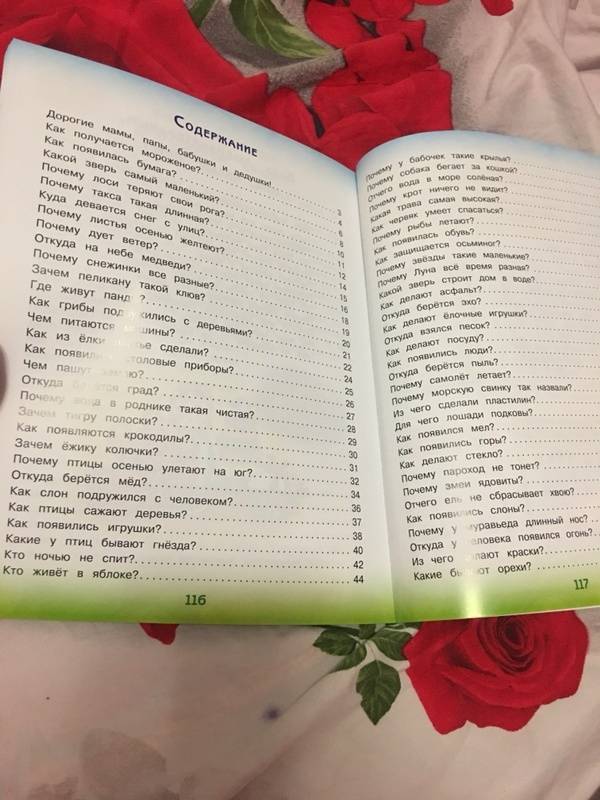 Содержание
Дорогие мамы, папы, бабушки и дедушки!
Как получается мороженое?
Как появилась бумага? 3
Какой зверь самый маленький? 4
Почему лоси теряют свои рога? 6
Почему такса такая длинная? 8
Куда девается снег с улиц? 10
Почему листья осенью желтеют? 11
Почему дует ветер? 12
Откуда на небе медведи? 14
Почему снежинки все разные? 15
Зачем пеликану такой клюв? 16
Где живут 18
Как грибы с деревьями? 19
Чем питаются 20
Как из ёлки сделали? 21
Как столовые приборы? 22
Чем пашут 24
Откуда град? 25
Почему в роднике такая чистая? 26
Зачем тигру полоски? 27
Как появляются крокодилы? 28
Зачем ёжику колючки? 29
Почему птицы осенью улетают на юг? 30
Откуда берётся мёд? 31
Как слон подружился с человеком? 32
Как птицы сажают деревья? 34
Как появились игрушки? 36
Какие у птиц бывают гнёзда? 37
Кто ночью не спит? 38
Кто живёт в яблоке? 40
42
44
116
Почему у бабочек такие крылья?
Почему собака бегает за кошкой?
Отчего вода в море солёная?
Почему крот ничего не видит?
Какая трава самая высокая?
Как червяк умеет спасаться?
Почему рыбы летают?
Как появилась обувь?
Как защищается осьминог?
Почему звёзды такие маленькие?
Почему Луна всё время разная?
Какой зверь строит дом в воде?
Как делают асфальт?
Откуда берётся эхо?
Как делают ёлочные игрушки?
Откуда взялся песок?
Как делают посуду?
Как появились люди?
Откуда берётся пыль?
Почему самолёт летает?
Почему морскую свинку так назвали?
Из чего сделали пластилин?
Для чего лошади подковы?
Как появился мел?
Как появились горы?
Как делают стекло?
Почему пароход не тонет?
Почему змеи ядовиты?
Отчего ель не сбрасывает хвою?
Как появились слоны?
Почему у муравьеда длинный нос?
Откуда у человека появился огонь?
Из чего делают краски?
Какие бывают орехи?
117